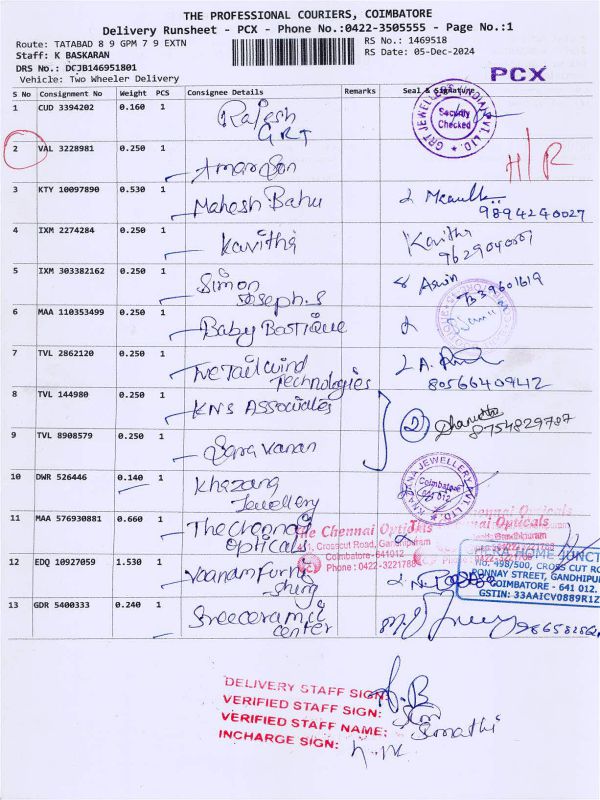 THE PROFESSIONAL COURIERS, COIMBATORE
Delivery Runsheet - PCX - Phone No.:0422-3505555 - Page No.:1
Route: TATABAD 8 9 GPM 7 9 EXTN
RS No.: 1469518
Staff: K BASKARAN
RS Date: 05-Dec-2024
DRS No.: DCJB146951801
Vehicle: Two Wheeler Delivery
PCX
S No Consignment No Weight PCS Consignee Details Remarks Seal & Signature
1 CUD 3394202 0.160 1 Rajesh
GRT
GRT JEWELLERS INDIA PVT. LTD.
Security
Checked
2 VAL 3228981 0.250 1
H/R
3 KTY 10097890 0.530 1 Mahesh Babu
9894240027
4 IXM 2274284 0.250 1 Kavitha Kavitha
5 IXM 303382162 0.250 1 Simon
Joseph.S
6 MAA 110353499 0.250 1 Baby Bastique
7 TVL 2862120 0.250 1 Netailwind
Technologies
8056640942
8 TVL 144980 0.250 1 KNS Associates
2
8754829787
9 TVL 8908579 0.250 1 Saravanan
10 DWR 526446 0.140 1 Khazana
Jewellery
KHAZANA JEWELLERY PVT. LTD.
Coimbatore
641 012
11 MAA 576930881 0.660 1 The Chennai
Opticals
The Chennai Opticals
Crosscut Road, Gandhipuram
Coimbatore-641012
Phone : 0422-3221789
12 EDQ 10927059 1.530 1 Vaanam Furni
shing
HOME JUNCT
No. 498/500, CROSS CUT RO
PONNAY STREET, GANDHIPU
COIMBATORE - 641 012.
GSTIN: 33AAICV0889R1Z
13 GDR 5400333 0.240 1 Sreeceramic
center
DELIVERY STAFF SIGN:
VERIFIED STAFF SIGN:
VERIFIED STAFF NAME: Sumathi
INCHARGE SIGN: